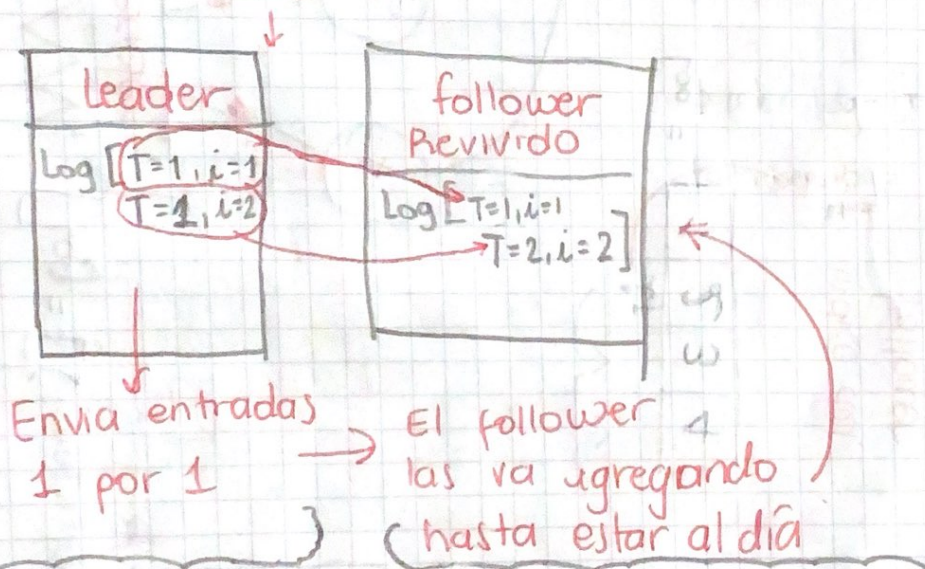 Leader
Log [T=1, i=1
T=1, i=2
follower
Revivido
Log [T=1, i=1
T=2, i=2]
Envia entradas
1 por 1
El follower
las va agregando
hasta estar al día